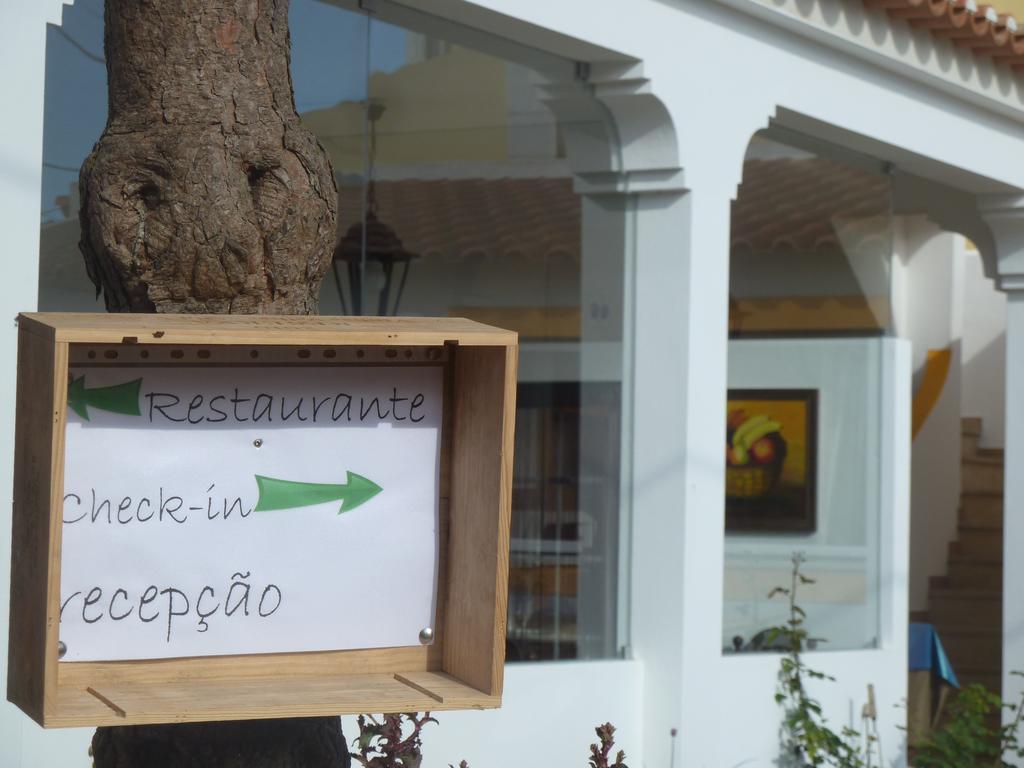 Restaurante
check-in
recepção